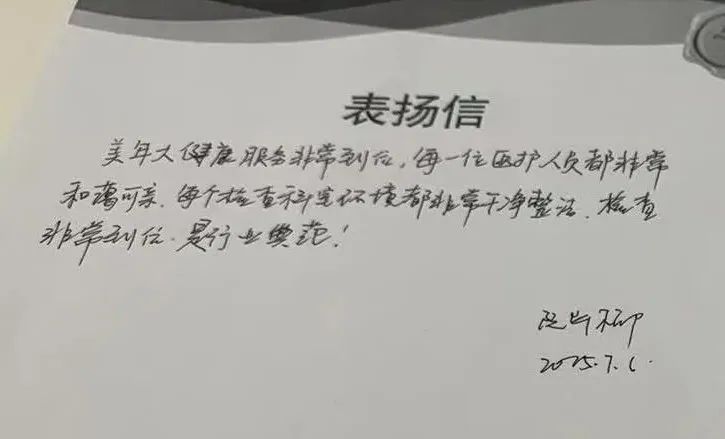 表扬信
美年大健康服务非常到位,每一位医护人员都非常
和蔼可亲.每个检查科室环境都非常干净整洁.检查
非常到位.是行业典范!
2025.7.1.